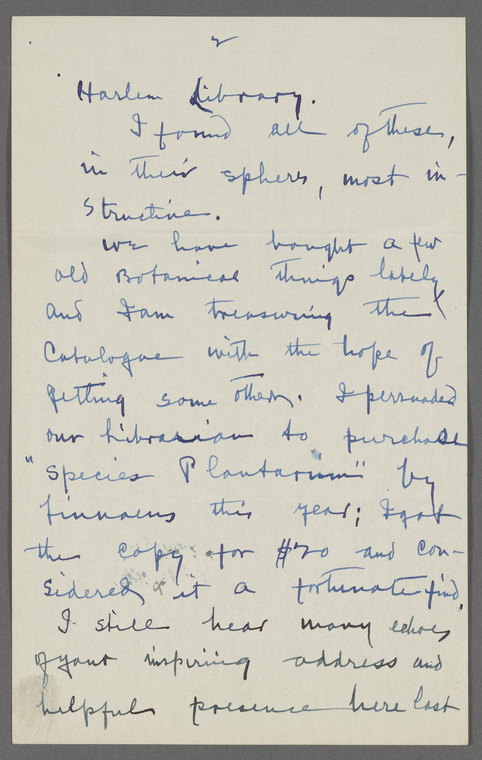 2
Harlem Library.
I found all of these,
in their spheres, most in-
structive.
We have bought a few
old Botanical things lately
and I am treasuring the
Catalogue with the hope of
getting some others. I persuaded
our Librarian to purchase
"Species Plantarum" by
Linnaeus this year; I got
the copy for $20 and con-
sidered it a fortunate find.
I still hear many echoes
of your inspiring address and
helpful presence here last